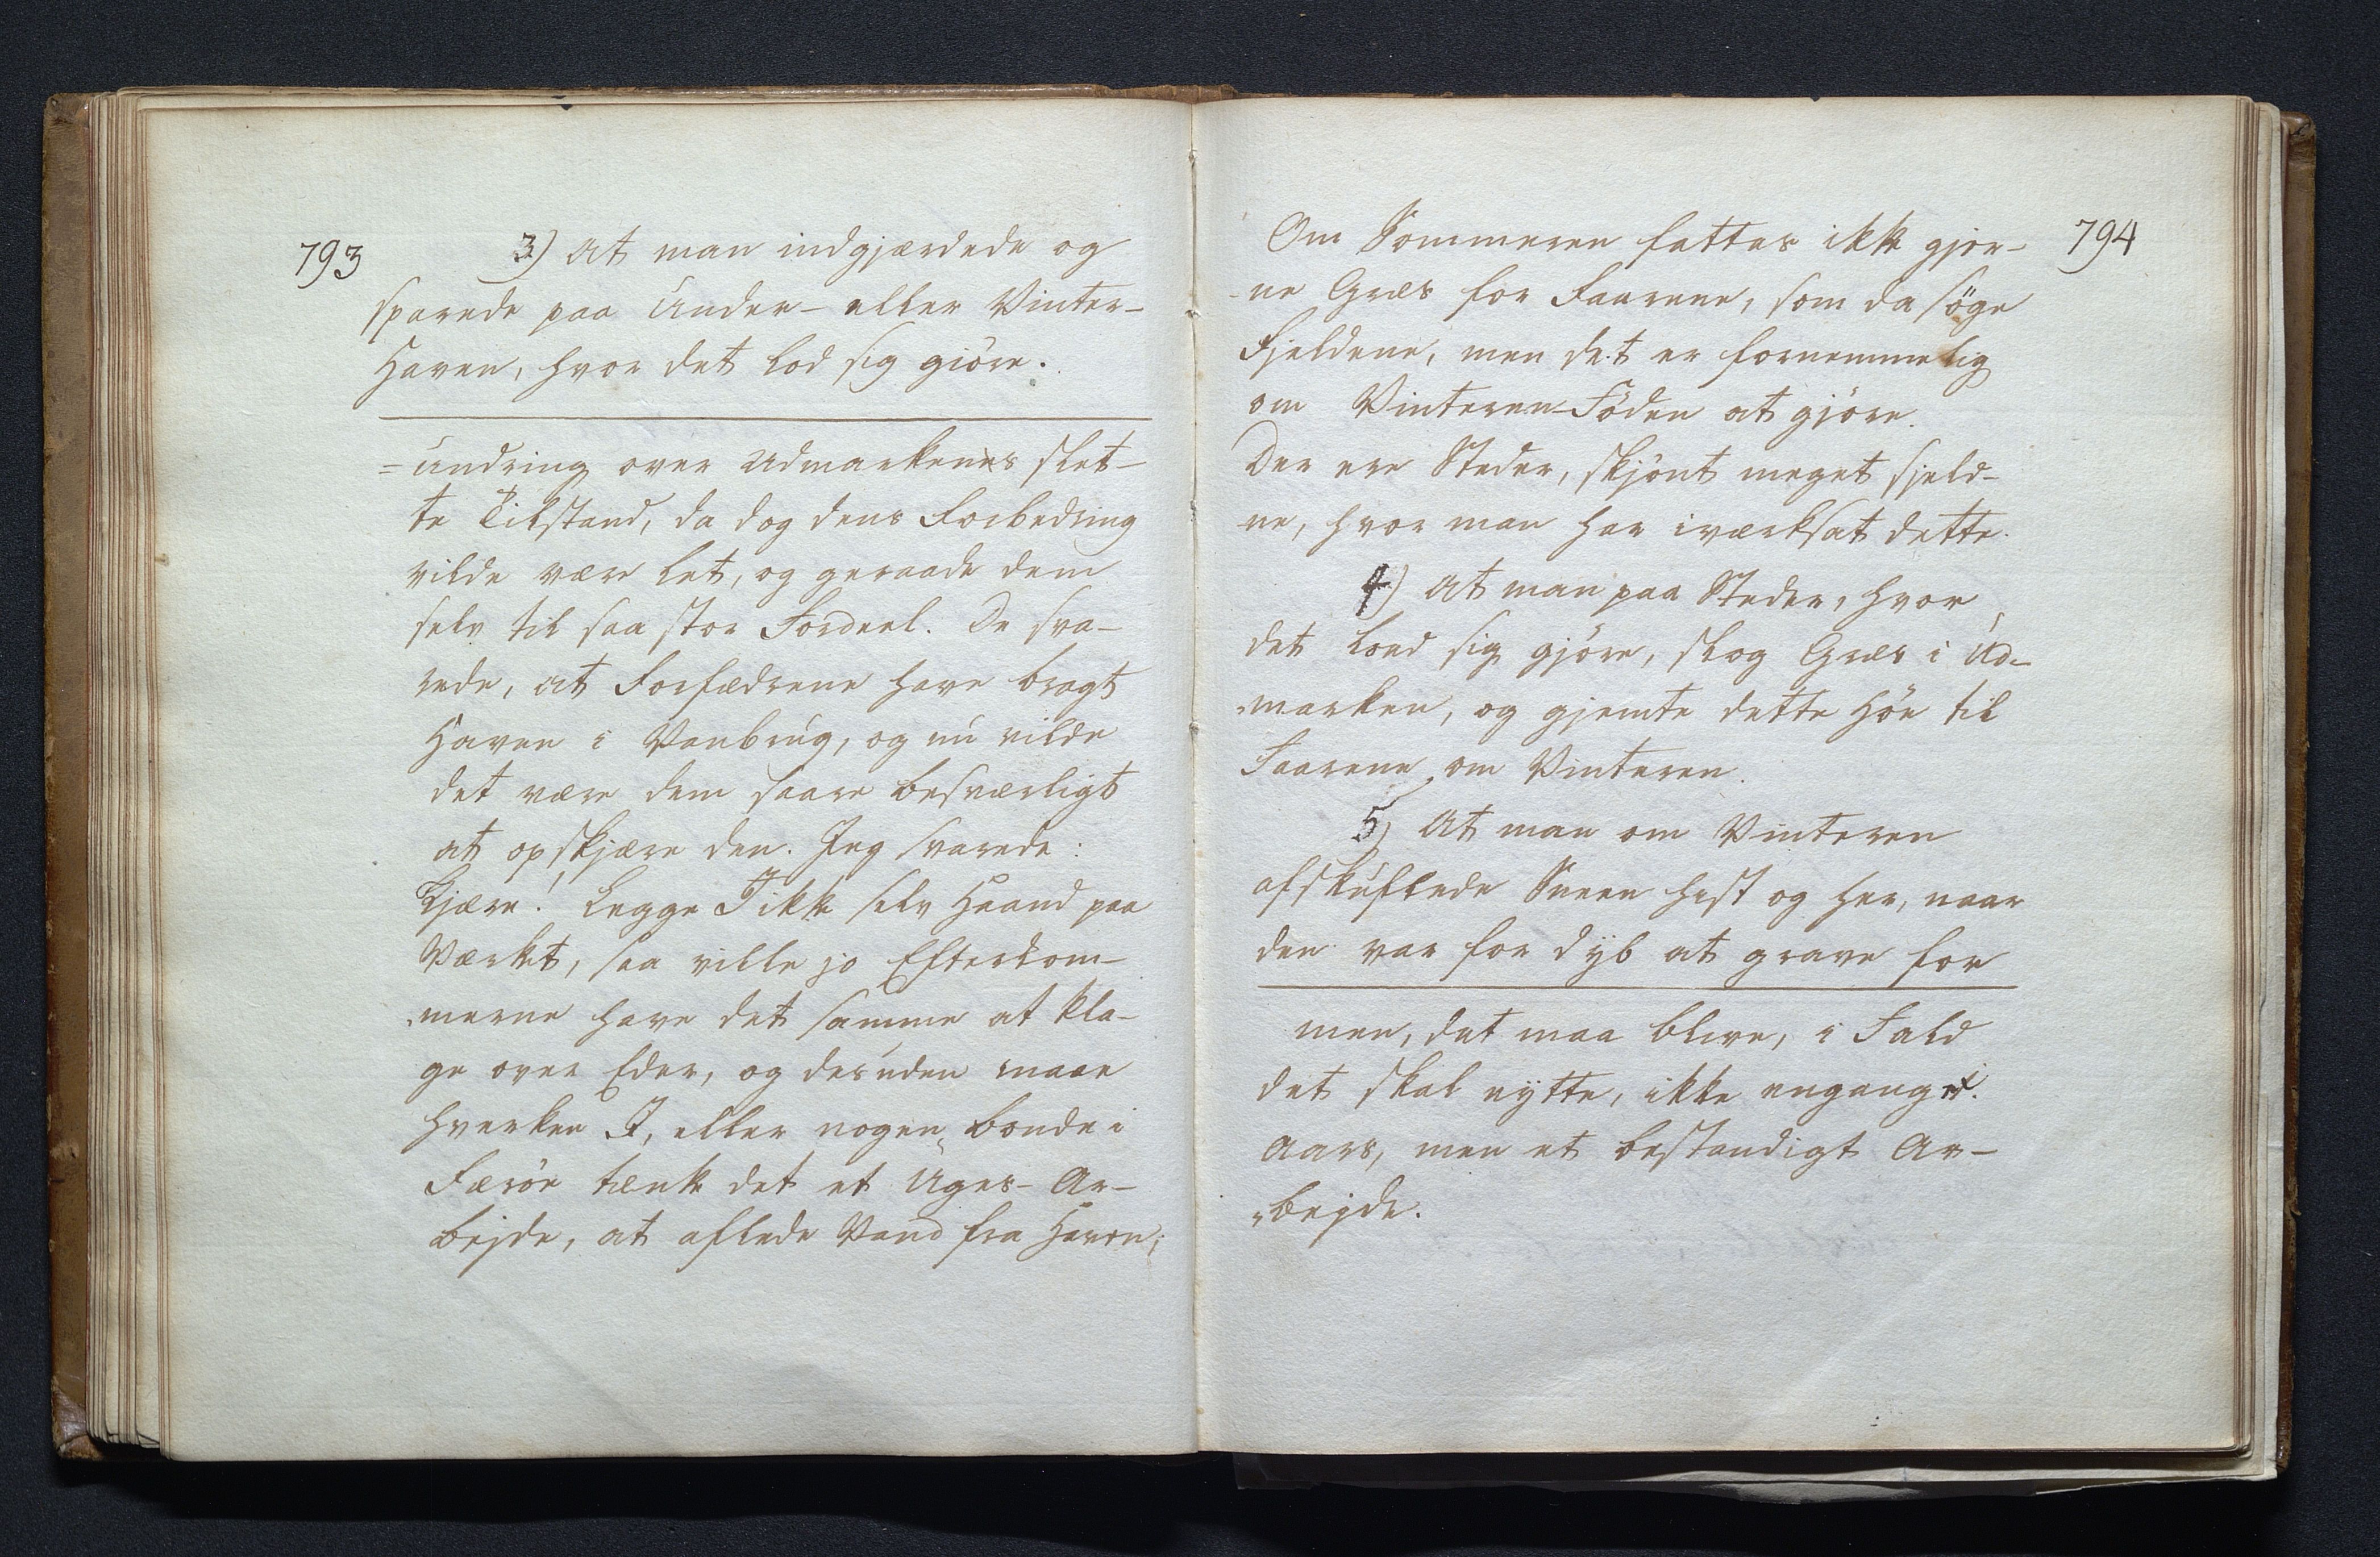 793
3) at man indgjærdede og
sparede paa Under- eller Vinter-
Haven, hvor det lod sig giöre.
=undring over Udmarkenes slet-
te Tilstand, da dog dens Forbedring
vilde være let, og geraade dem
selv til saa stor Fordeel. De sva-
rede, at Forfædrene have bragt
Haven i Vanbrug, og nu vilde
det være dem saare besværligt
at opskjære den. Jeg svarede:
Kjære! Legge I ikke selv Haand paa
Værket, saa ville jo Efterkom-
merne have det samme at kla-
ge over Eder, og desuden maae
hverken I, eller nogen Bonde i
Færöe tænke det et Uges-Ar-
bejde, at aflede Vand fra Haven;
794
Om Sommeren fattes ikke gjer-
ne Græs for Faarene, som da söge
Fjeldene, men det er fornemmelig
om Vinteren-Föden at gjöre.
Der ere Steder, skjönt meget sjeld-
ne, hvor man har iværksat dette.
4) At man paa Steder, hvor
det loed sig gjöre, slog Græs i Ud-
marken, og gjemte dette Höe til
Faarene om Vinteren.
5) At man om Vinteren
afskuflede Sneen hist og her, naar
den var for dyb at grave for
men, det maa blive, i Fald
det skal nytte, ikke engang
Aars, men et bestandigt Ar-
bejde.